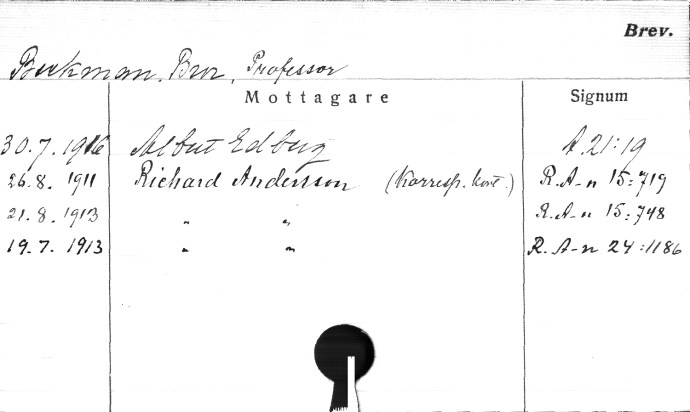 Brev.
Beckman, Bror, Professor
Mottagare Signum
30.7.1916 Albert Edbug A.21:19
26.8. 1911 Richard Andersson (Korresp. kort.) R.A-n 15:719
21.8.1913 " " R.A-n 15:748
19.7.1913 " " R.A-n 24:1186